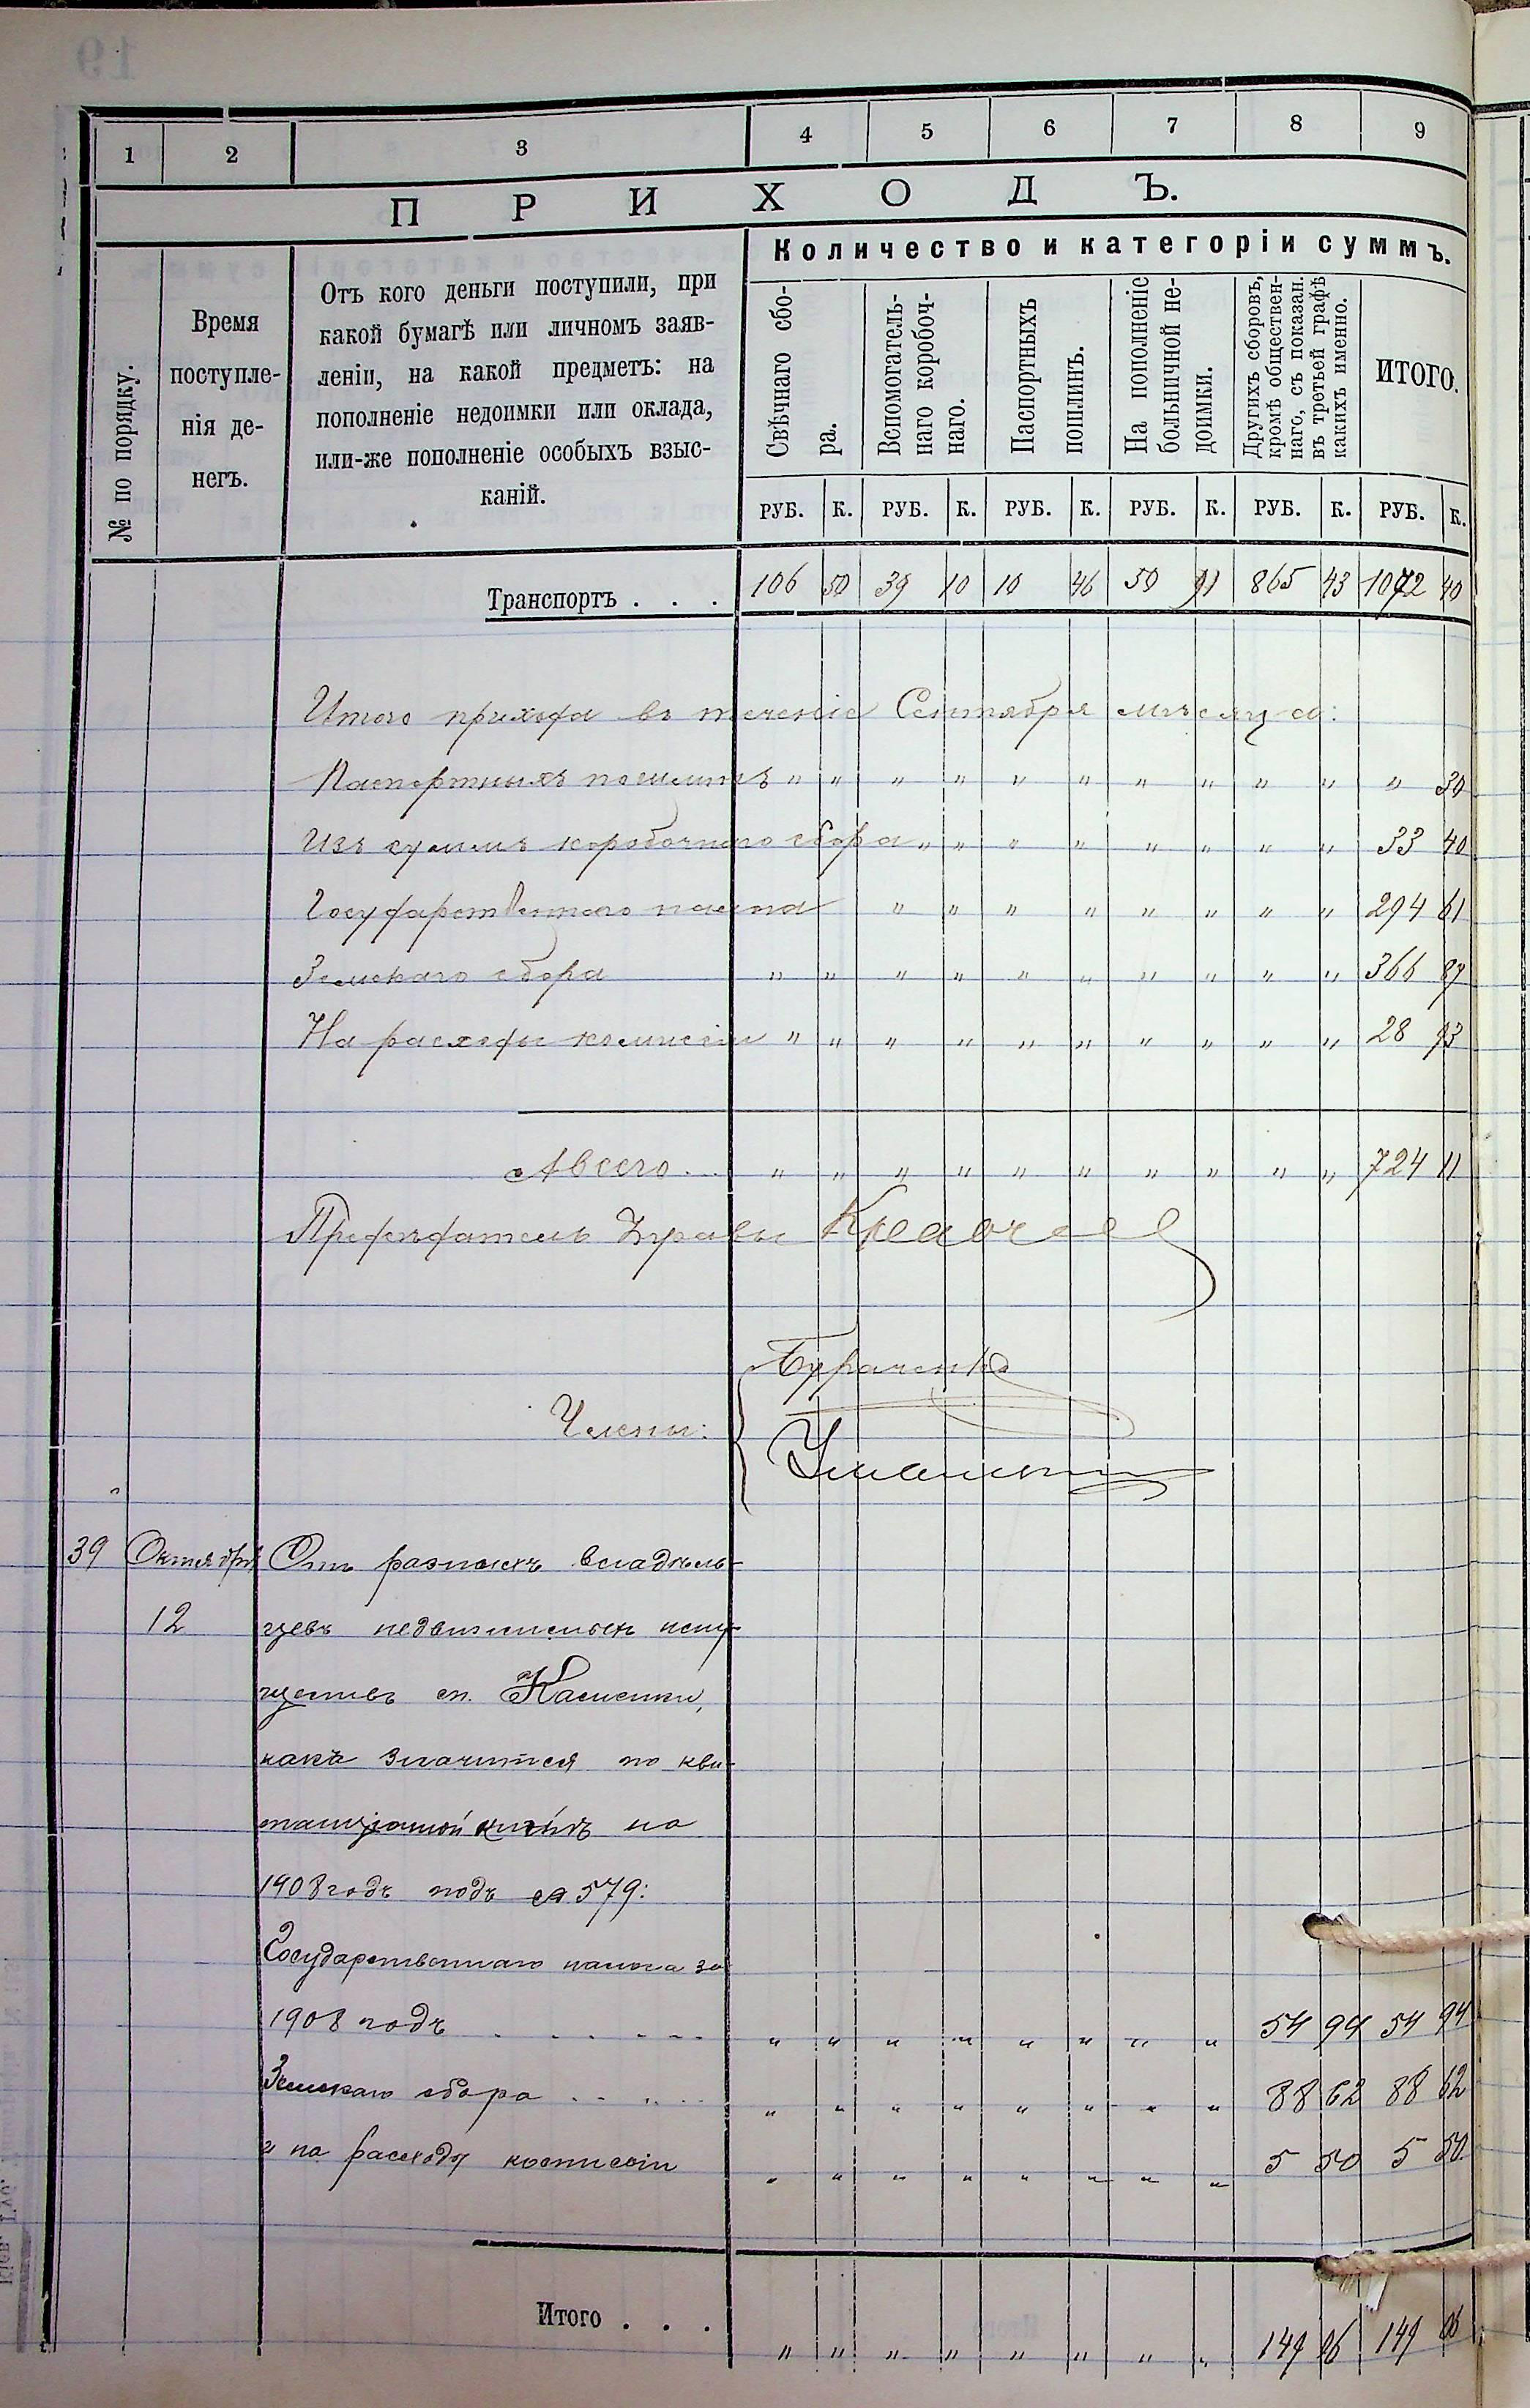 1 2 3 4 5 6 7 8 9
ПРИХОДЪ.
Количество и категоріи суммъ.
№ по порядку.
Время
поступле-
нія де-
негъ.
Отъ кого деньги поступили, при
какой бумагѣ или личномъ заяв-
леніи, на какой предметъ: на
пополненіе недоимки или оклада,
или-же пополненіе особыхъ взыс-
каній.
Свѣчнаго сбо-
ра.
Вспомогатель-
наго коробоч-
наго.
Паспортныхъ
пошлинъ.
На пополненіе
больничной не-
доимки.
Другихъ сборовъ,
кромѣ обществен-
наго, съ показан.
въ третьей графѣ
какихъ именно.
ИТОГО.
РУБ. К. РУБ. К. РУБ. К. РУБ. К. РУБ. К. РУБ. К.
Транспортъ . . . 106 50 39 10 10 46 50 91 865 43 1072 40
Итого прихода въ теченіе Сентября мѣсяца:
Паспортныхъ пошлинъ " " " " " " " " " " " 30
Изъ суммъ коробочнаго сбора " " " " " " " " 33 40
Государственнаго налога " " " " " " " " 294 61
Земскаго сбора " " " " " " " " " " 366 87
На расходы комисіи " " " " " " " " " " 28 93
А всего... " " " " " " " " " " 724 11
Предсѣдатель Управы
Члены:
39 Октября От разныхъ владѣль-
12 цевъ недвижимыхъ иму-
ществъ м. Каменки,
какъ значится по кви-
танціонной книгѣ на
1908 годъ подъ № 579:
Государственнаго налога за
1908 годъ . . . . . . " " " " " " " " 54 94 54 94
Земскаго сбора . . . . . " " " " " " " " 88 62 88 62
и на расходы комисіи " " " " " " " " 5 50 5 50
Итого . . . " " " " " " " " 149 06 149 06